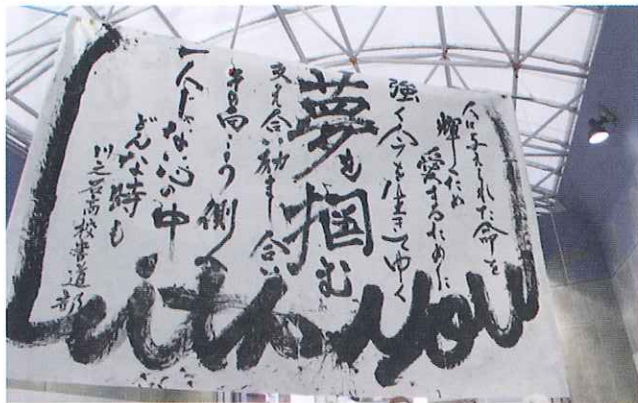 人に与えられた命を
輝くため
愛するために
強く今を生きてゆく
夢を掴む
支え合い励まし合い
側へ
一人じゃない心の中
どんな時も
高校書道部
with you